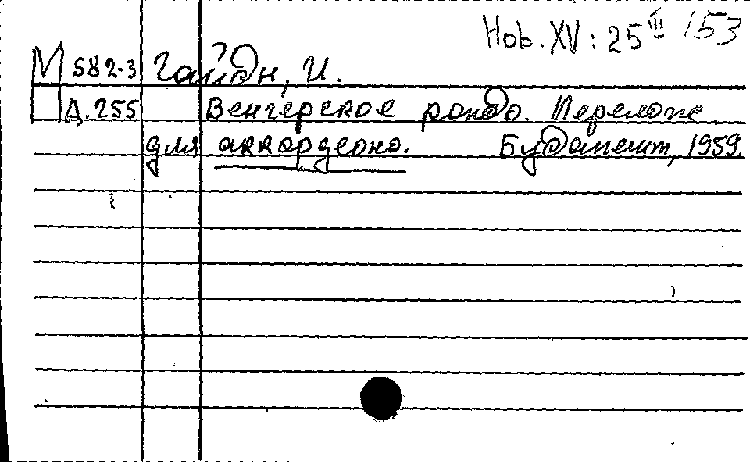 Hob. XV: 25 III 153
М 582-3 Гайдн, И.
Д. 255 Венгерское рондо. Перелож.
для аккордеона. Будапешт, 1959.